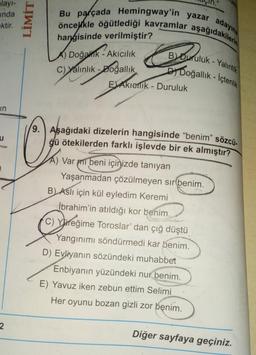 LİMİT
ında
ektir.
Bu parçada Hemingway'in yazar adayına
öncelikle öğütlediği kavramlar aşağıdakilerin
hangisinde verilmiştir?
A) Doğallık - Akıcılık
B) Duruluk - Yalınlık
C) Yalınlık - Doğallık
D) Doğallık - İçtenlik
E) Akıcılık - Duruluk
9. Aşağıdaki dizelerin hangisinde "benim" sözcü-
ğü ötekilerden farklı işlevde bir ek almıştır?
A) Var mı beni içinizde tanıyan
Yaşanmadan çözülmeyen sır benim.
B) Aslı için kül eyledim Keremi
İbrahim'in atıldığı kor benim.
C) Yüreğime Toroslar' dan çığ düştü
Yangınımı söndürmedi kar benim.
D) Evliyanın sözündeki muhabbet
Enbiyanın yüzündeki nur benim.
E) Yavuz iken zebun ettim Selimi
Her oyunu bozan gizli zor benim.
2
Diğer sayfaya geçiniz.